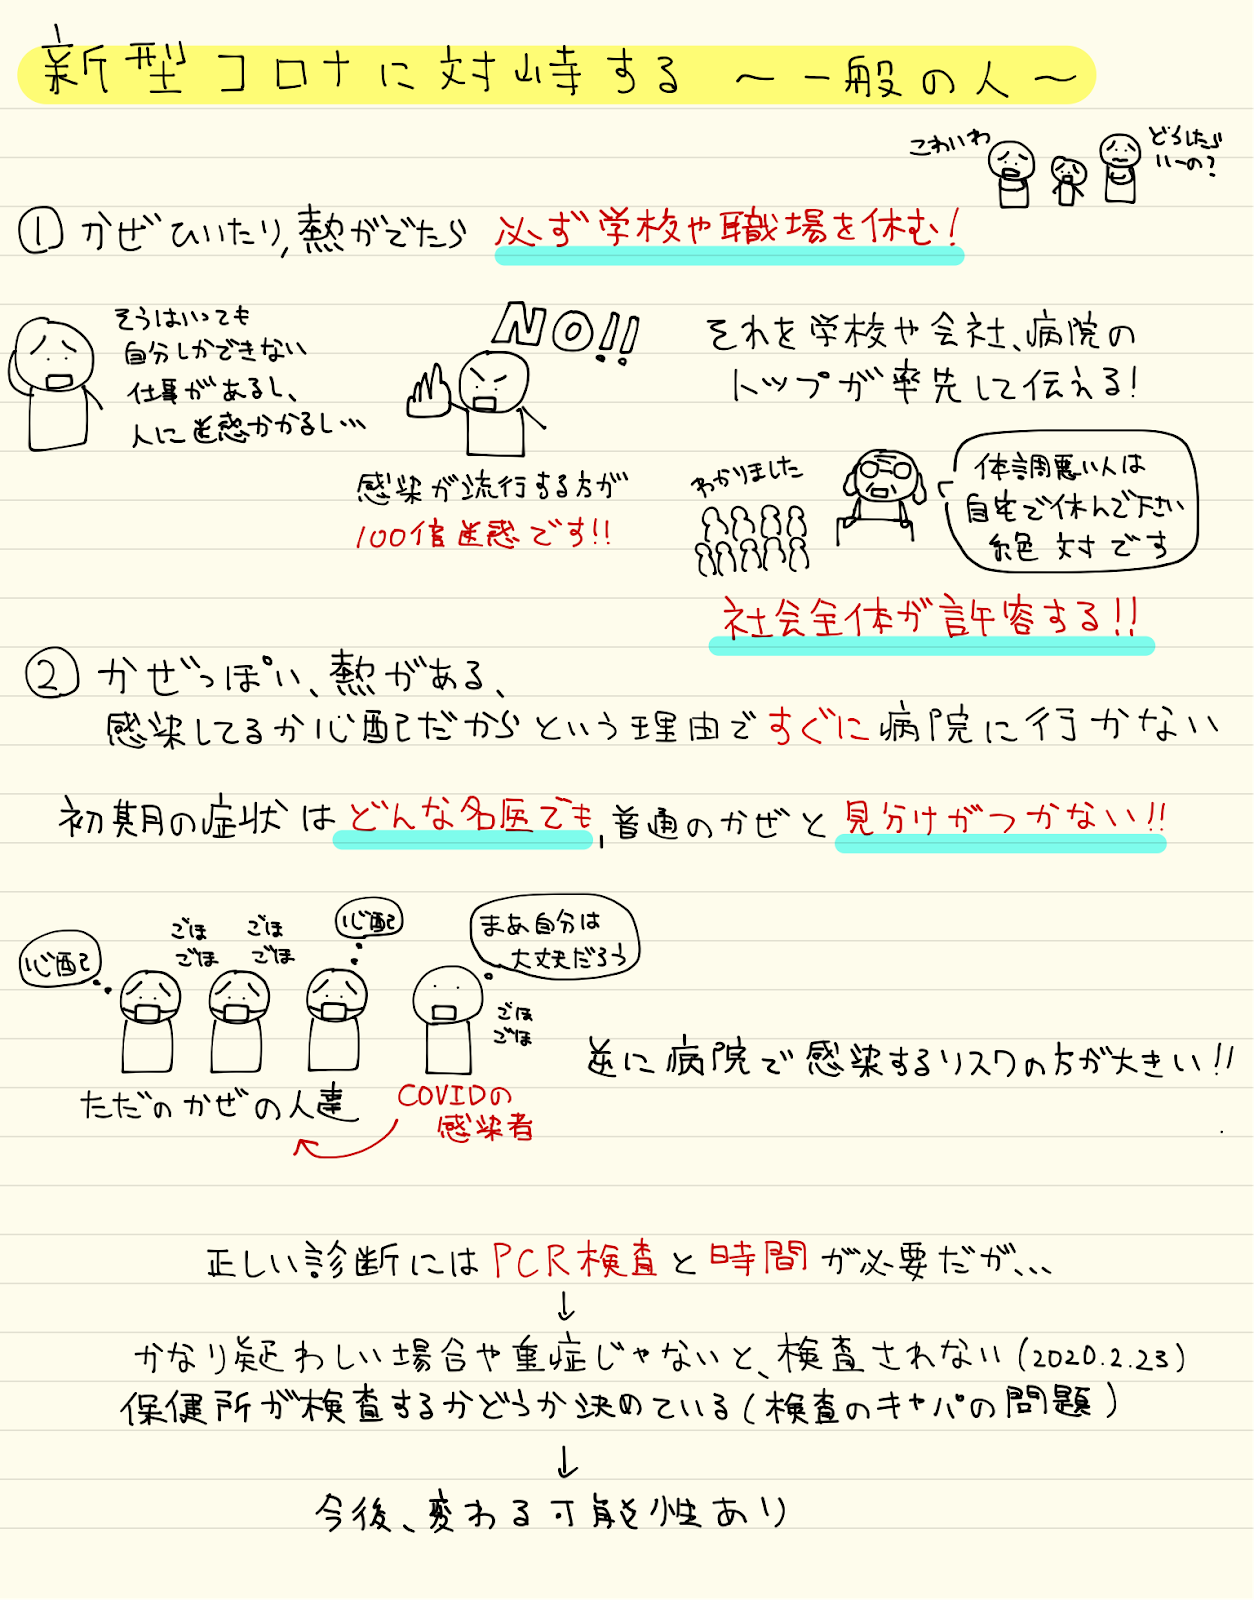 新型コロナに対峙する 〜一般の人〜
こわいわ
どうしたら
いーの?
① かぜひいたり、熱がでたら 必ず学校や職場を休む!
そうはいっても
自分しかできない
仕事があるし、
人に迷惑かかるし…
NO!!
感染が流行する方が
100倍迷惑です!!
それを学校や会社、病院の
トップが率先して伝える!
わかりました
体調悪い人は
自宅で休んで下さい
絶対です
社会全体が許容する!!
② かぜっぽい、熱がある、
感染してるか心配だからという理由ですぐに病院に行かない
初期の症状はどんな名医でも、普通のかぜと見分けがつかない!!
心配
ごほ
ごほ
ごほ
ごほ
心配
まあ自分は
大丈夫だろう
ごほ
ごほ
ただのかぜの人達
COVIDの
感染者
逆に病院で感染するリスクの方が大きい!!
正しい診断にはPCR検査と時間が必要だが、、、
↓
かなり疑わしい場合や重症じゃないと、検査されない(2020.2.23)
保健所が検査するかどうか決めている(検査のキャパの問題)
↓
今後、変わる可能性あり